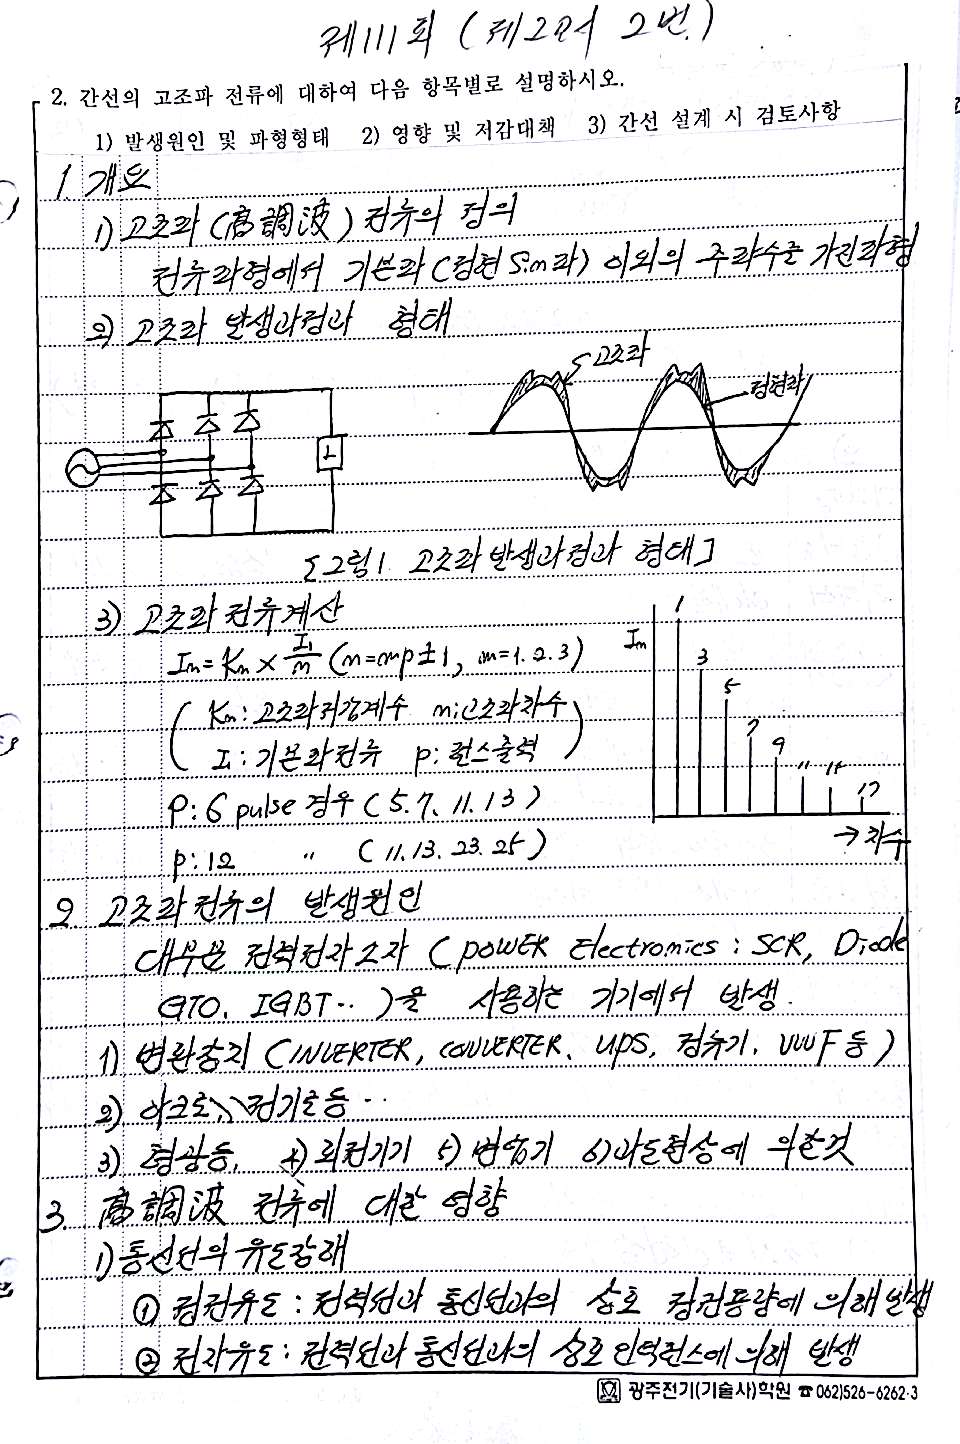 제111회 (제2교시 2번)
2. 간선의 고조파 전류에 대하여 다음 항목별로 설명하시오.
1) 발생원인 및 파형형태 2) 영향 및 저감대책 3) 간선 설계 시 검토사항
1. 개요
1) 고조파 (高調波) 전류의 정의
전류파형에서 기본파 (정현 Sin파) 이외의 주파수를 가진파형
2) 고조파 발생과정과 형태
고조파
정현파
L
[그림1. 고조파 발생과정과 형태]
3) 고조파 전류계산
In = Kn × I1/n (n=mp±1, m=1.2.3)
Kn : 고조파저감계수 n : 고조파차수
I1 : 기본파전류 p : 펄스출력
P : 6 pulse 경우 (5.7. 11. 13)
p : 12 〃 (11. 13. 23. 25)
In 1 3 5 7 9 11 17
→ 차수
2. 고조파전류의 발생원인
대부분 전력전자소자 (POWER Electronics : SCR, Diode
GTO, IGBT ‥ )을 사용하는 기기에서 발생.
1) 변환장치 (INVERTER, CONVERTER, UPS, 정류기, VVVF 등)
2) 아크로, 전기로등 ‥
3) 형광등, 4) 회전기기 5) 변압기 6) 과도현상에 의한것
3. 高調波 전류에 대한 영향
1) 통신선의 유도장해
① 정전유도 : 전력선과 통신선과의 상호 정전용량에 의해 발생
② 전자유도 : 전력선과 통신선과의 상호 인덕턴스에 의해 발생
광주전기(기술사)학원 ☎ 062)526-6262·3